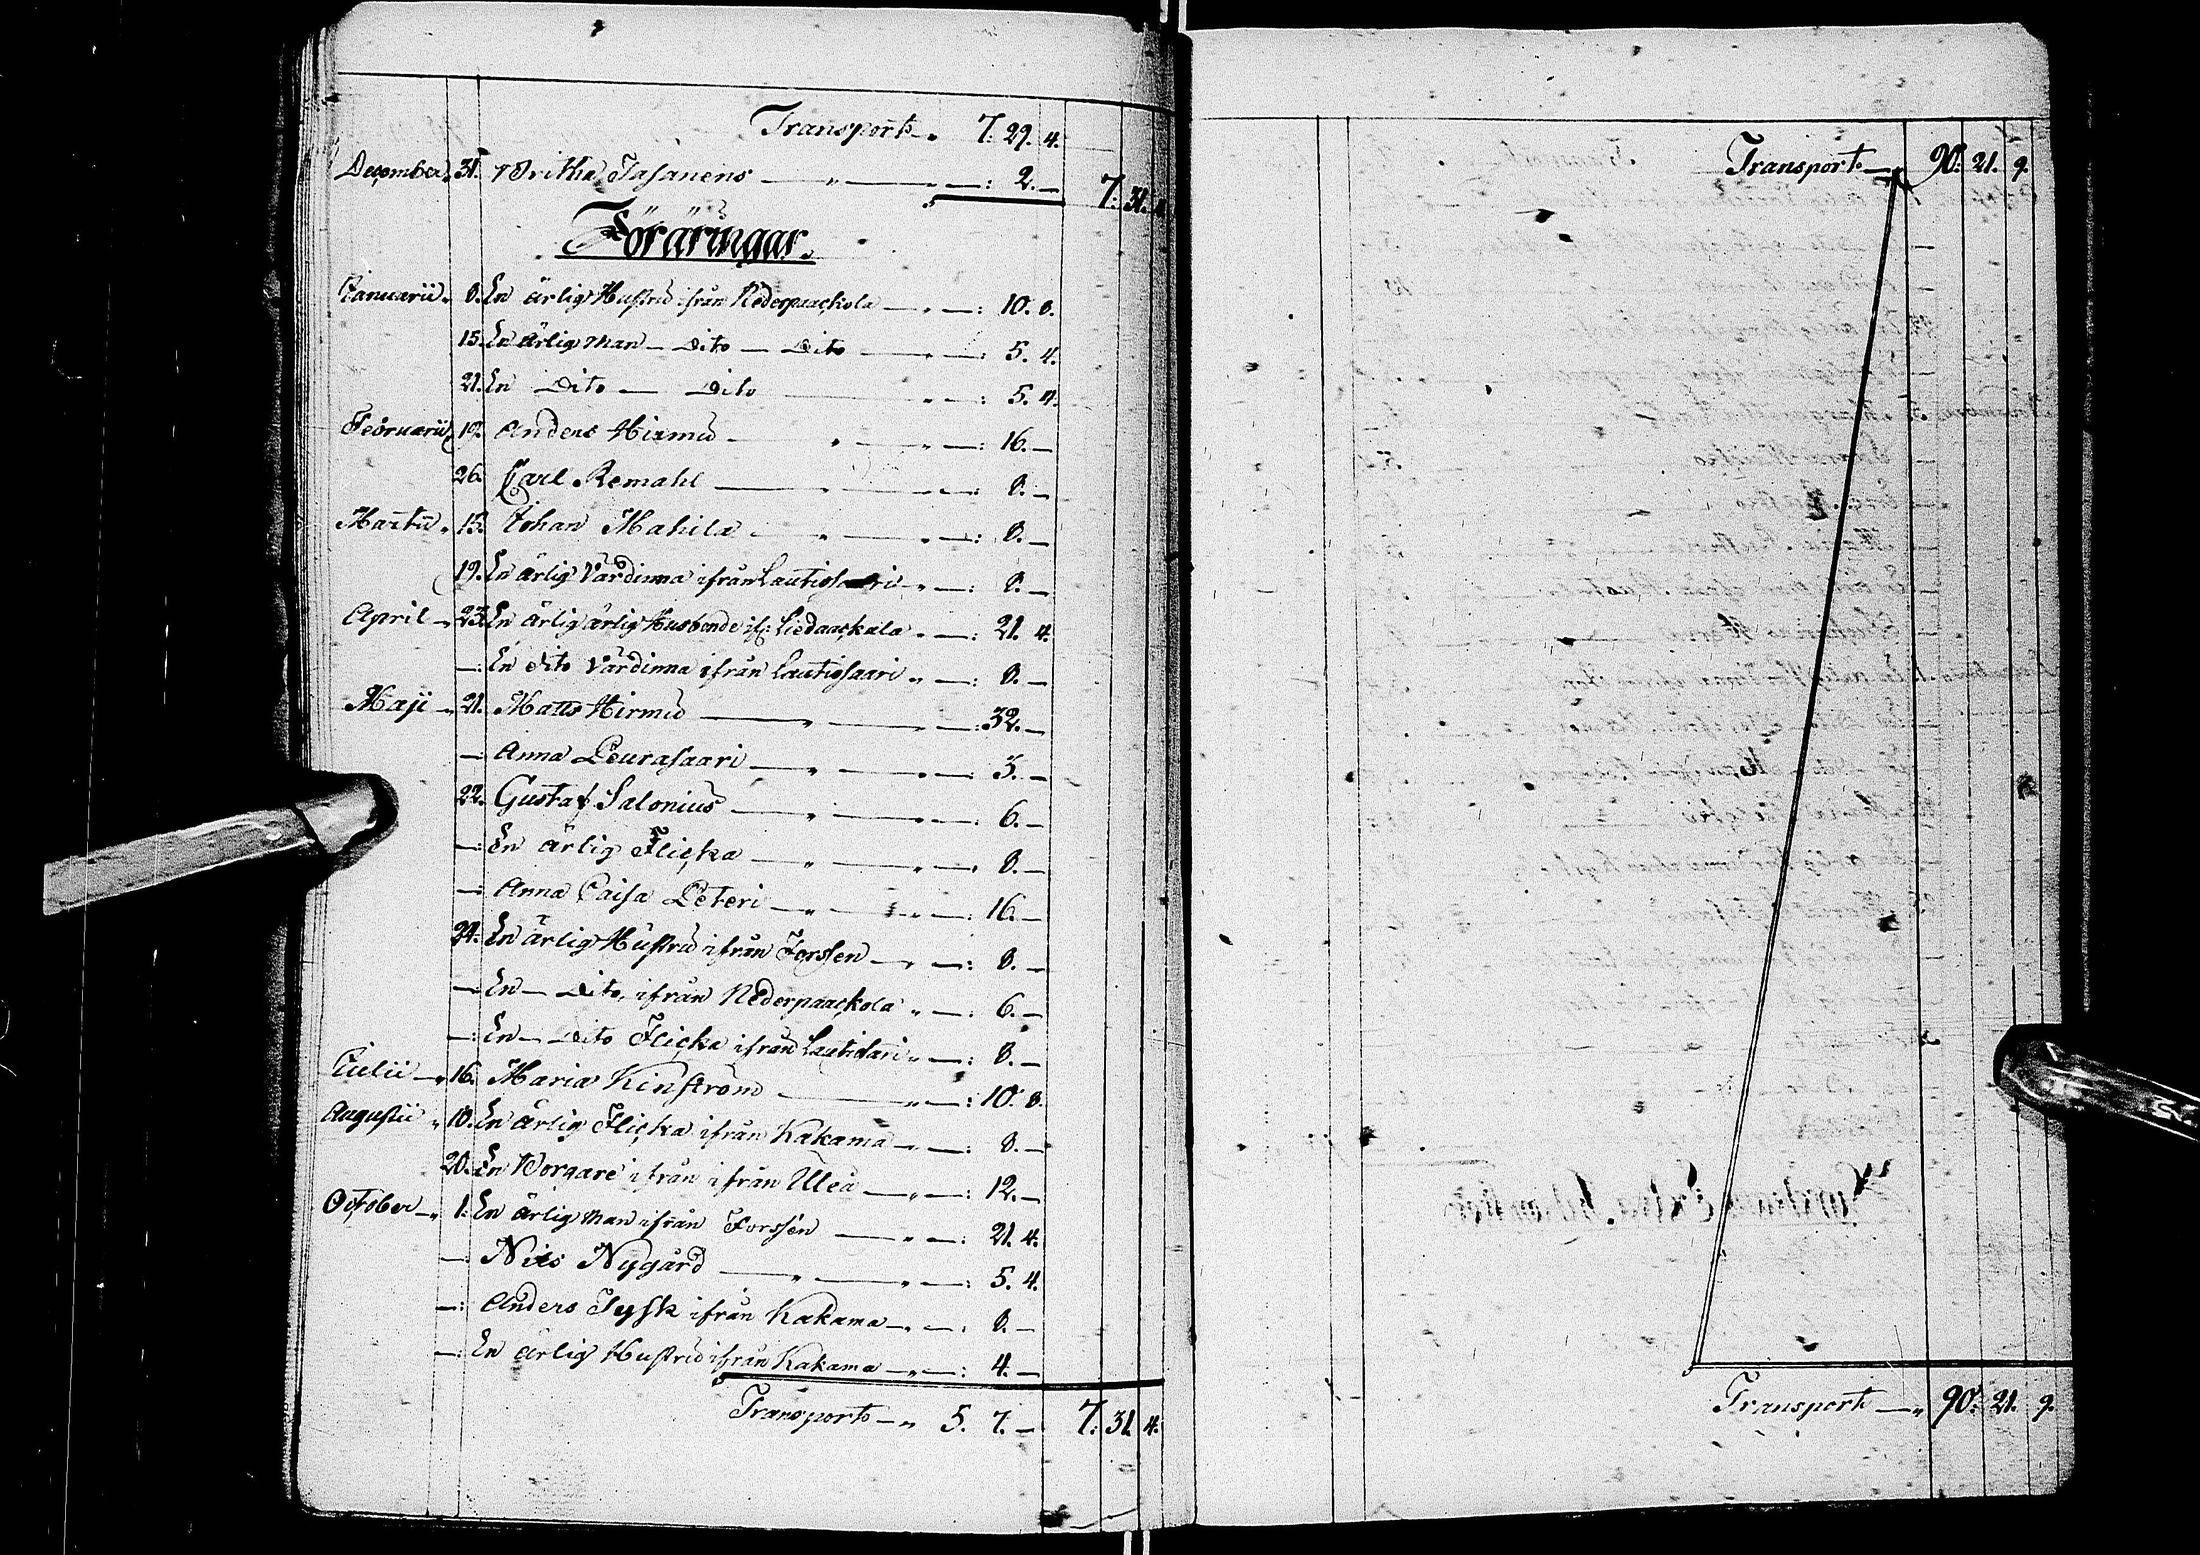 Transport 7. 29. 4.
December 31. Britha Jasanens 2. — 7. 31. 4.
Föräringar.
Januarii 8. En ärlig Hustru ifrån Nederpaackola 10. 8.
15. En ärlig Man Dito Dito 5. 4.
21. En Dito Dito 5. 4.
Februarii 19. Anders Hirmu 16. —
26. Carl Remahl 8. —
Martii 15. Johan Mahila 8. —
19. En ärlig Värdinna ifrån Lautiosaari 8. —
April 23. En ärlig ärlig Husbonde if: Liedaackala 21. 4.
—: En dito Värdinna ifrån Lautiosaari 8. —
Maji 21. Matts Hirmu 32. —
—: Anna Leurasaari 3. —
22. Gustaf Salonius 6. —
—: En ärlig Flicka 8. —
—: Anna Caisa Peteri 16. —
24. En ärlig Hustru ifrån Forssen 8. —
—: En Dito, ifrån Nederpaackola 6. —
—: En Dito Flicka ifrån Lautiosari 8. —
Julii 16. Maria Kinström 10. 8.
Augustii 10. En ärlig Flicka ifrån Kakama 8. —
20. En Borgare ifrån ifrån Uleå 12. —
October 1. En ärlig Man ifrån Forssén 21. 4.
—: Nils Nygård 5. 4.
—: Anders Tysk ifrån Kakama 8. —
—: En ärlig Hustru ifrån Kakama 4. —
Transport 5. 7. — 7. 31. 4.
Transport 90. 21. 9.
Transport 90. 21. 9.